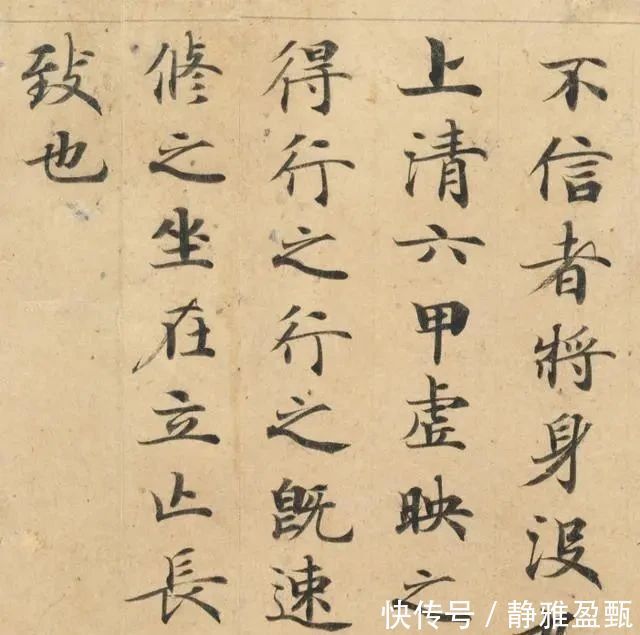 不信者將身没
上清六甲虛映之
得行之行之既速
修之坐在立亡長
致也
快传号/静雅盈甄